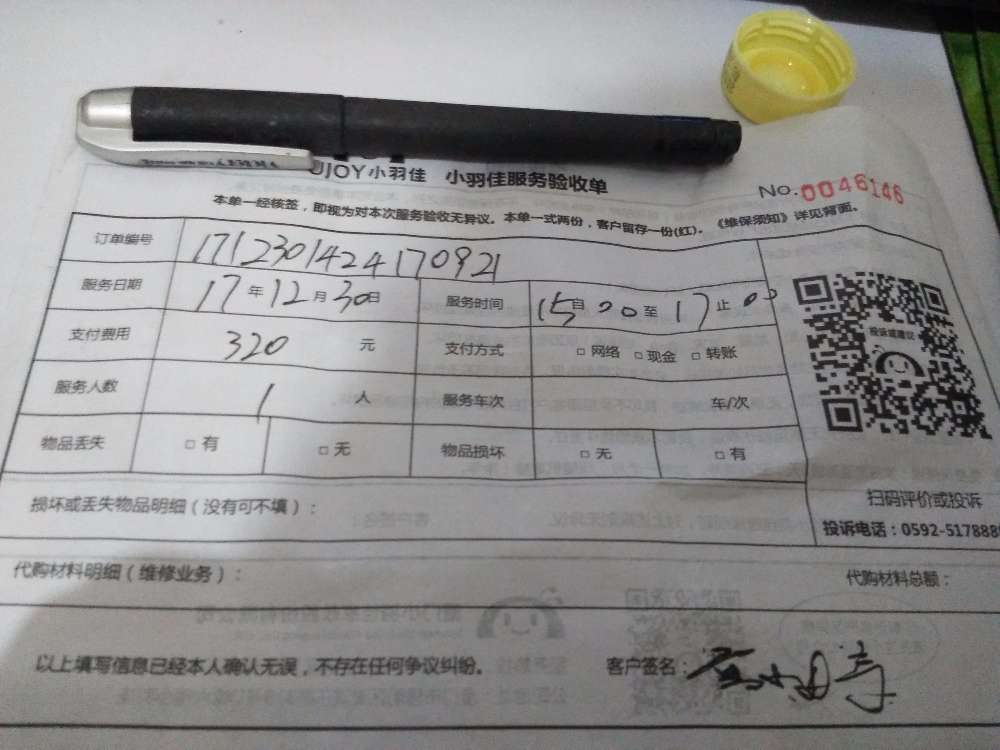 UJOY小羽佳 小羽佳服务验收单
No.0046146
本单一经核签，即视为对本次服务验收无异议。本单一式两份，客户留存一份(红)。《维保须知》详见背面。
订单编号 1712301424170921
服务日期 17年12月30日 服务时间 15自00至17止00
支付费用 320 元 支付方式 □网络 □现金 □转账
服务人数 1 人 服务车次 车/次
物品丢失 □有 □无 物品损坏 □无 □有
投诉或建议
扫码评价或投诉
投诉电话：0592-5178888
损坏或丢失物品明细（没有可不填）：
代购材料明细（维修业务）： 代购材料总额：
以上填写信息已经本人确认无误，不存在任何争议纠纷。 客户签名：